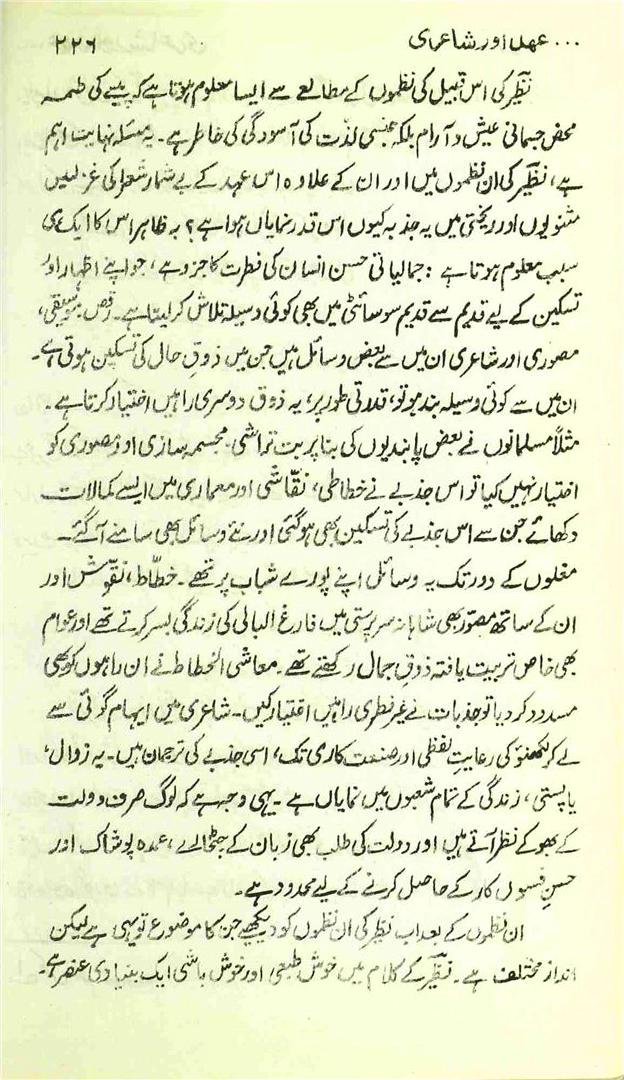 ۰۰۰ عہد اور شاعری ۲۲۶
نظیر کی اس قبیل کی نظموں کے مطالعے سے ایسا معلوم ہوتا ہے کہ پیسے کی طمع
محض جسمانی عیش و آرام بلکہ جنسی لذت کی آسودگی کی خاطر ہے۔ یہ مسئلہ نہایت اہم
ہے، نظیر کی ان نظموں میں اور ان کے علاوہ اس عہد کے بے شمار شعرا کی غزلیں
مثنویوں اور ریختی میں یہ جذبہ کیوں اس قدر نمایاں ہوا ہے؟ بہ ظاہر اس کا ایک ہی
سبب معلوم ہوتا ہے : جمالیاتی حسن انسان کی فطرت کا جزو ہے، جو اپنے اظہار اور
تسکین کے لیے قدیم سے قدیم سوسائٹی میں بھی کوئی وسیلہ تلاش کر لیتا ہے۔ رقص، موسیقی،
مصوری اور شاعری ان میں سے بعض وسائل ہیں جن میں ذوقِ جمال کی تسکین ہوتی ہے۔
ان میں سے کوئی وسیلہ بند ہو تو، قدرتی طور پر، یہ ذوق دوسری راہیں اختیار کرتا ہے۔
مثلاً مسلمانوں نے بعض پابندیوں کی بنا پر بت تراشی، مجسمہ سازی اور مصوری کو
اختیار نہیں کیا تو اس جذبے نے خطاطی، نقّاشی اور معماری میں ایسے کمالات
دکھائے جن سے اس جذبے کی تسکین بھی ہو گئی اور نئے وسائل بھی سامنے آ گئے۔
مغلوں کے دور تک یہ وسائل اپنے پورے شباب پر تھے۔ خطّاط، نقّوش اور
ان کے ساتھ مصوّر بھی شاہانہ سرپرستی میں فارغ البالی کی زندگی بسر کرتے تھے اور عوام
بھی خاص تربیت یافتہ ذوقِ جمال رکھتے تھے۔ معاشی انحطاط نے ان راہوں کو بھی
مسدود کر دیا تو جذبات نے غیر فطری راہیں اختیار کیں۔ شاعری میں ایہام گوئی سے
لے کر لکھنؤ کی رعایتِ لفظی اور صنعت کاری تک، اسی جذبے کی ترجمان ہیں۔ یہ زوال،
یا پستی، زندگی کے تمام شعبوں میں نمایاں ہے۔ یہی وجہ ہے کہ لوگ صرف دولت
کے بھوکے نظر آتے ہیں اور دولت کی طلب بھی زبان کے چٹخارے، عمدہ پوشاک اور
حسنِ فسوں کار کے حاصل کرنے کے لیے محدود ہے۔
ان نظموں کے بعد اب نظیر کی ان نظموں کو دیکھیے جن کا موضوع تو یہی ہے لیکن
انداز مختلف ہے۔ نظیر کے کلام میں خوش طبعی اور خوش باشی ایک بنیادی عنصر ہے۔